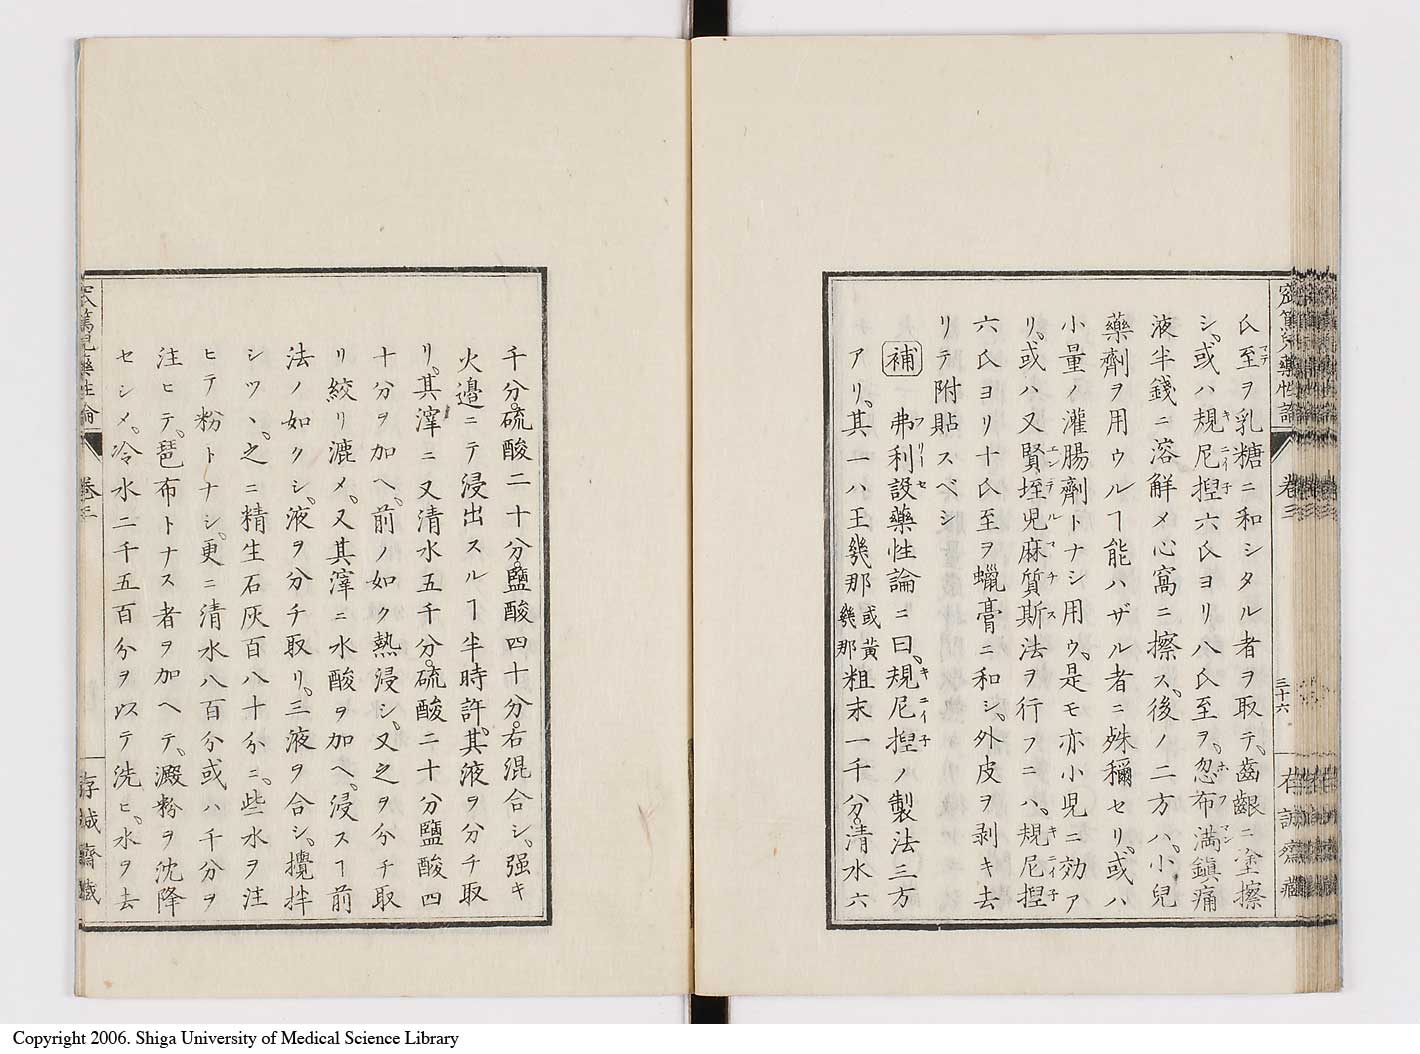 窊篤兒藥性論
卷三
三十六
存誠齋藏
氏至ヲ乳糖ニ和シタル者ヲ取テ。齒齦ニ塗擦
シ。或ハ規尼捏六氏ヨリ八氏至ヲ。忽布滿鎭痛
液半錢ニ溶解メ心窩ニ擦ス。後ノ二方ハ。小兒
藥劑ヲ用ウルヿ能ハザル者ニ殊稱セリ。或ハ
小量ノ灌腸劑トナシ用ウ。是モ亦小児ニ効ア
リ。或ハ又賢垤児麻質斯法ヲ行フニハ。規尼捏
六氏ヨリ十氏至ヲ蠟膏ニ和シ。外皮ヲ剥キ去
リテ附貼スベシ
補 弗利設藥性論ニ曰。規尼捏ノ製法三方
アリ。其一ハ王幾那或黃幾那粗末一千分。清水六
千分。硫酸二十分。鹽酸四十分。右混合シ。强キ
火邉ニテ浸出スルヿ半時許。其液ヲ分チ取
リ。其滓ニ又清水五千分。硫酸二十分鹽酸四
十分ヲ加ヘ。前ノ如ク熱浸シ。又之ヲ分チ取
リ絞リ漉メ。又其滓ニ水酸ヲ加ヘ。浸スヿ前
法ノ如クシ。液ヲ分チ取リ。三液ヲ合シ。攪拌
シツヽ。之ニ精生石灰百八十分ニ。些水ヲ注
ヒテ粉トナシ。更ニ清水八百分或ハ千分ヲ
注ヒテ。琶布トナス者ヲ加ヘテ。澱粉ヲ沈降
セシメ。冷水二千五百分ヲ以テ洗ヒ。水ヲ去
窊篤兒藥性論
卷三
存誠齋藏
Copyright 2006. Shiga University of Medical Science Library